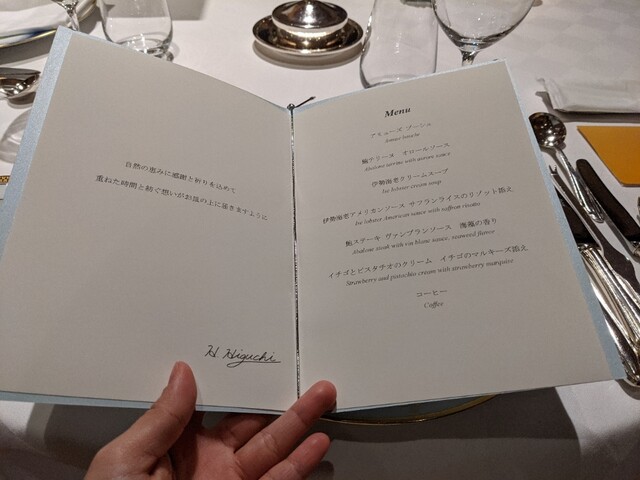 自然の恵みに感謝と祈りを込めて
重ねた時間と紡ぐ想いがお皿の上に届きますように
H Higuchi
Menu
アミューズ ブーシュ
Amuse bouche
鮑テリーヌ オロールソース
Abalone terrine with aurore sauce
伊勢海老クリームスープ
Ise lobster cream soup
伊勢海老アメリカンソース サフランライスのリゾット添え
Ise lobster American sauce with saffron risotto
鮑ステーキ ヴァンブランソース 海藻の香り
Abalone steak with vin blanc sauce, seaweed flavor
イチゴとピスタチオのクリーム イチゴのマルキーズ添え
Strawberry and pistachio cream with strawberry marquise
コーヒー
Coffee